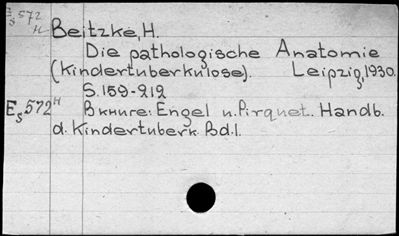 E
s 572
H
Beitzke, H.
Die pathologische Anatomie
(Kindertuberkulose). Leipzig, 1930.
S. 159-212
Es 572 H Вкниге: Engel u. Pirquet. Handb.
d. Kindertuberk. Bd. I.